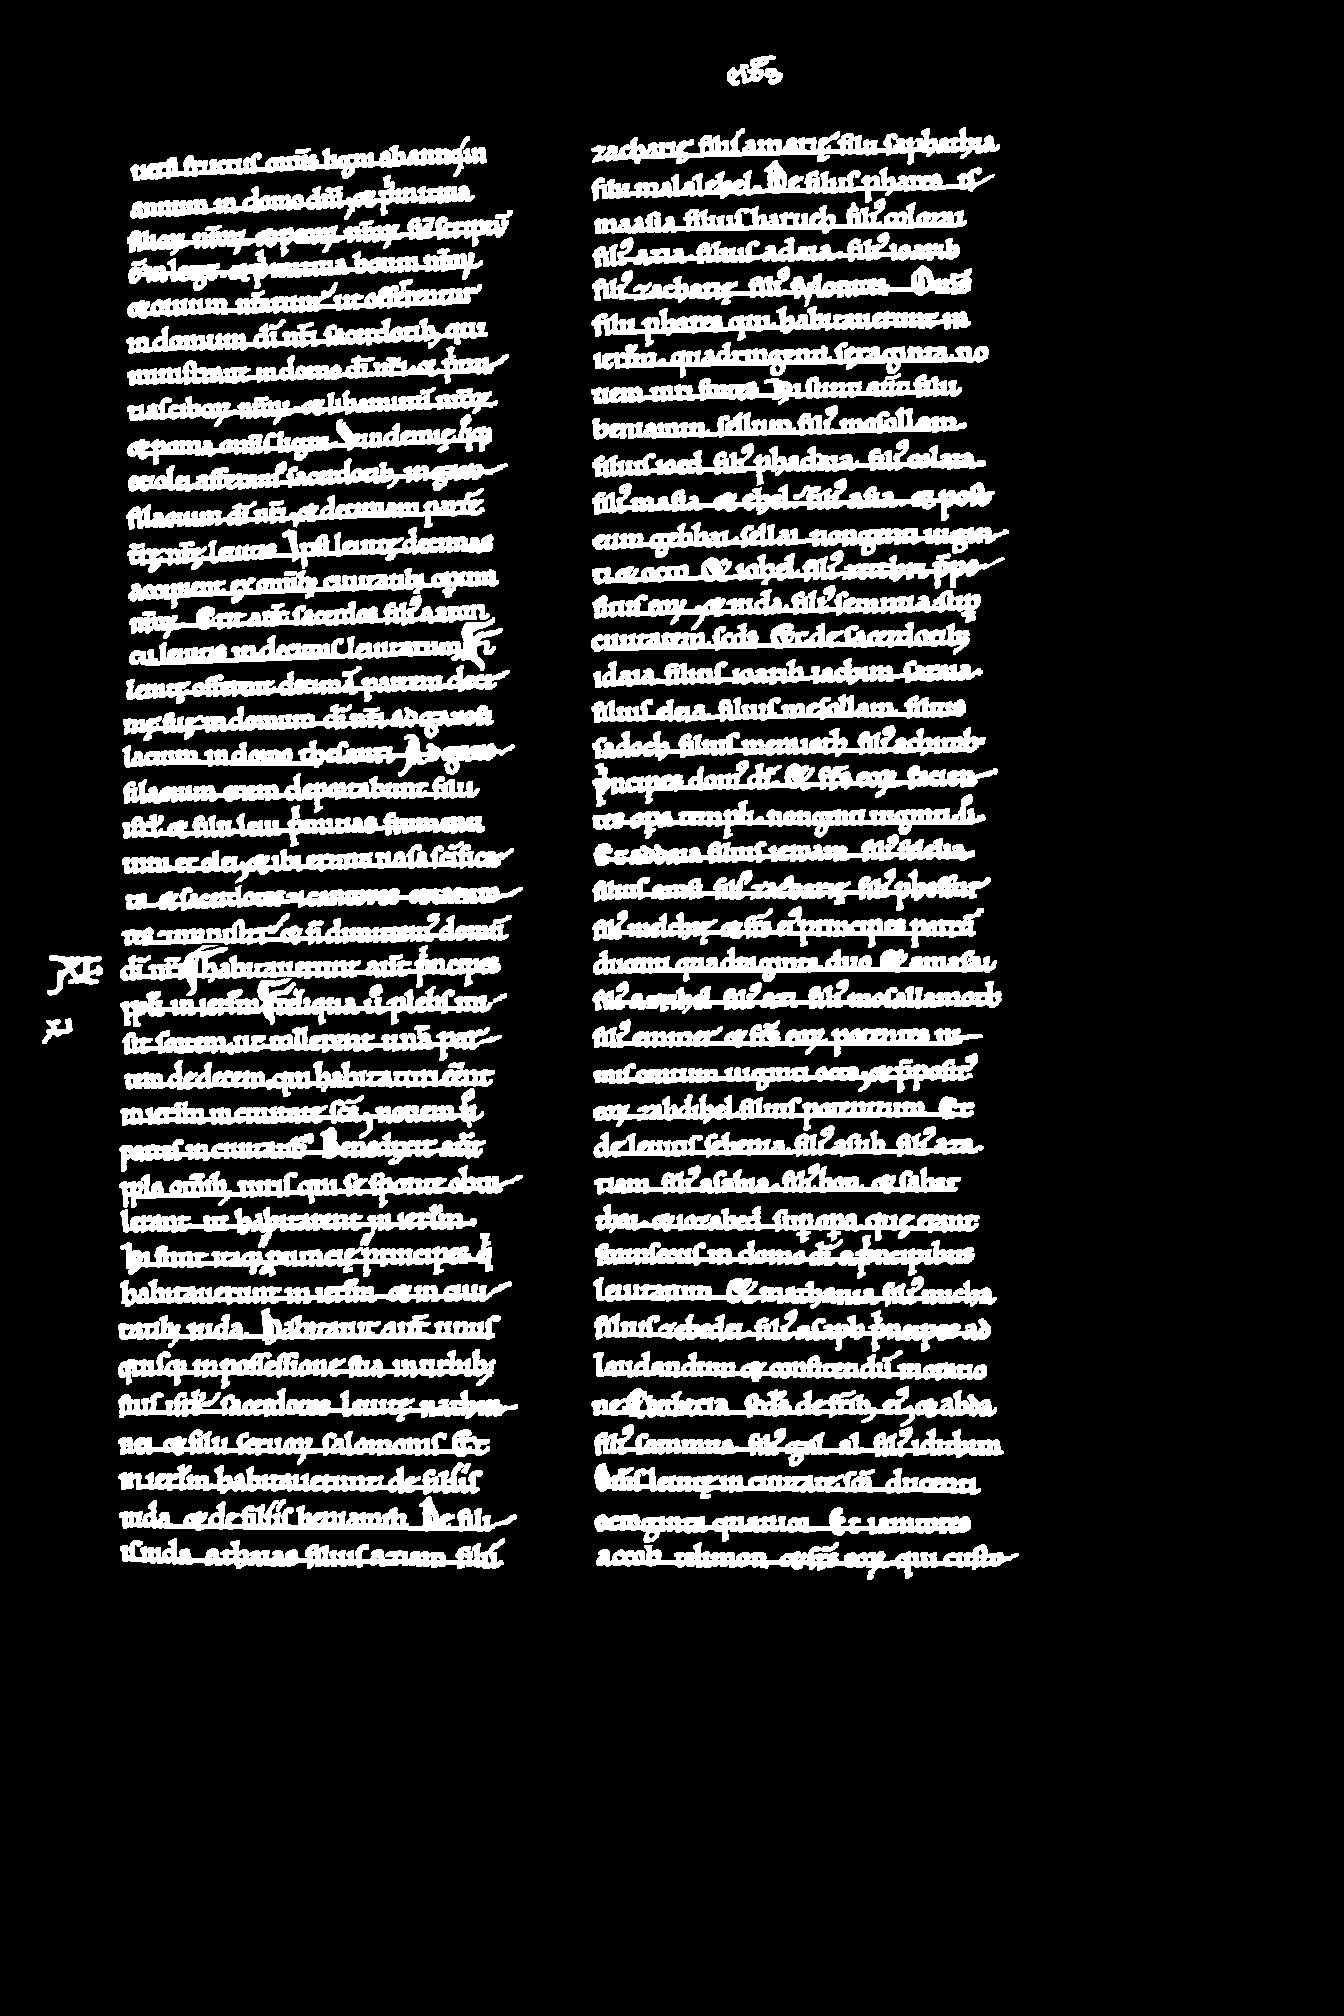 uersi fructus om̄s ligni ab anno in
annum in domo dn̄i, et p'mitiua
filioꝝ nr̄oꝝ et pecoꝝ nr̄oꝝ sic̄ scriptū
ē in lege et p'mitiua boum nr̄oꝝ
et ouium nr̄arum ut offerrentur
in domum di̅ nr̄i sacerdotib; qui
ministrant in domo di̅ nr̄i. et p'mi
tias ciboꝝ nr̄oꝝ et libaminū nr̄oꝝ
et poma om̄is ligni Vindemię q̨q̨
et olei afferemus sacerdotib; in gazo
filatium di̅ nr̄i, et decimam partē
tr̄ę nr̄ę leuitis Ipsi leuitę decimas
accipient ex om̄ib; ciuitatib; operum
nr̄oꝝ. Erit aut̄ sacerdos fili' aaron
cū leuitis in decimis leuitarum Et
leuitę offerent decimā partem deci
mę suę in domum di̅ nr̄i ad gazofi
lacium in domo thesauri Ad gazo
filatium enim deportabunt filii
isrl̄ et filii leui p'mitias frumenti
uini et olei, et ibi erunt uasa sc̄ifica
ta et sacerdotes et cantores et ianito
res et ministri et n̄ dimittem' domū
di̅ nr̄i Habitauerunt aut̄ p'ncipes
pp̄li in ierl̄m Reliqua u° plebs mi
sit sortem, ut tollerent unā par
tem de decem, qui habitaturi eēnt
in ierl̄m in ciuitate sc̄a, nouem u°
partes in ciuitatib; Benedixit aut̄
ppl̄s om̄ib; uiris qui se sponte obtu
lerant ut habitarent in ierl̄m.
Hi sunt itaq; prouincię principes q'
habitauerunt in ierl̄m et in ciui
tatib; iuda. Habitauit aut̄ unus
quisq; in possessione sua in urbib;
suis isrl̄ sacerdotes leuitę nathin
nei et filii seruoꝝ salomonis Et
in ierl̄m habitauerunt de filiis
iuda et de filiis beniamin De fili
is iuda athaias filius aziam filii
esdrę
XI
xi
zacharię filii amarię filii saphathia
filii malalehel. De filiis phares is
maasia filius baruch fili' colozai
fili' azia filius adaia fili' ioarib
fili' zacharię fili' sylonitis Om̄s
filii phares qui habitauerunt in
ierl̄m. quadringenti sexaginta oc
to uiri fortes Hi sunt aut̄ filii
beniamin sellum fili' mosollam.
filius ioed fili' phadaia fili' colaia.
fili' masia et ethel fili' asia. et post
eum gebbai sellai nongenti uigin
ti et octo Et iohel fili' zechri p̄po
situs eoꝝ, et iuda fili' semnua sup
ciuitatem scd̄s Et de sacerdotib;
idaia filius ioarib iachim saraia.
filius elcia filius mesollam filius
sadoch filius meraioth fili' achitob
p'ncipes dom' di̅. Et fr̄s eoꝝ facien
tes opa templi. nongenti uiginti ii.
Et addaia filius ieroam fili' felelia.
filius amsi fili' zacharię fili' phessur
fili' melchię et fr̄s ei' principes patrū
ducenti quadraginta duo Et amasai
fili' azrihel fili' azi fili' mosollamoth
fili' emmer et fr̄s eoꝝ potentes ni
mis centum uiginti octo, et p̄posit'
eoꝝ zabdihel filius potentium Et
de leuitis sebenia fili' asub fili' aza
riam fili' asabia fili' boni et sabat
thai et iozabed sup opa quę erant
forinsecus in domo di̅ a p'ncipibus
leuitarum Et mathania fili' micha
filius zebedei fili' asaph p'nceps ad
laudandum et confitendū in oratio
ne Et becbecia scd̄s de fr̄ib; ei', et abda
fili' sammua fili' galal fili' iditum
Om̄s leuitę in ciuitate sc̄a ducenti
octoginta quatuor Et ianitores
accob telmon et fr̄s eoꝝ qui custo